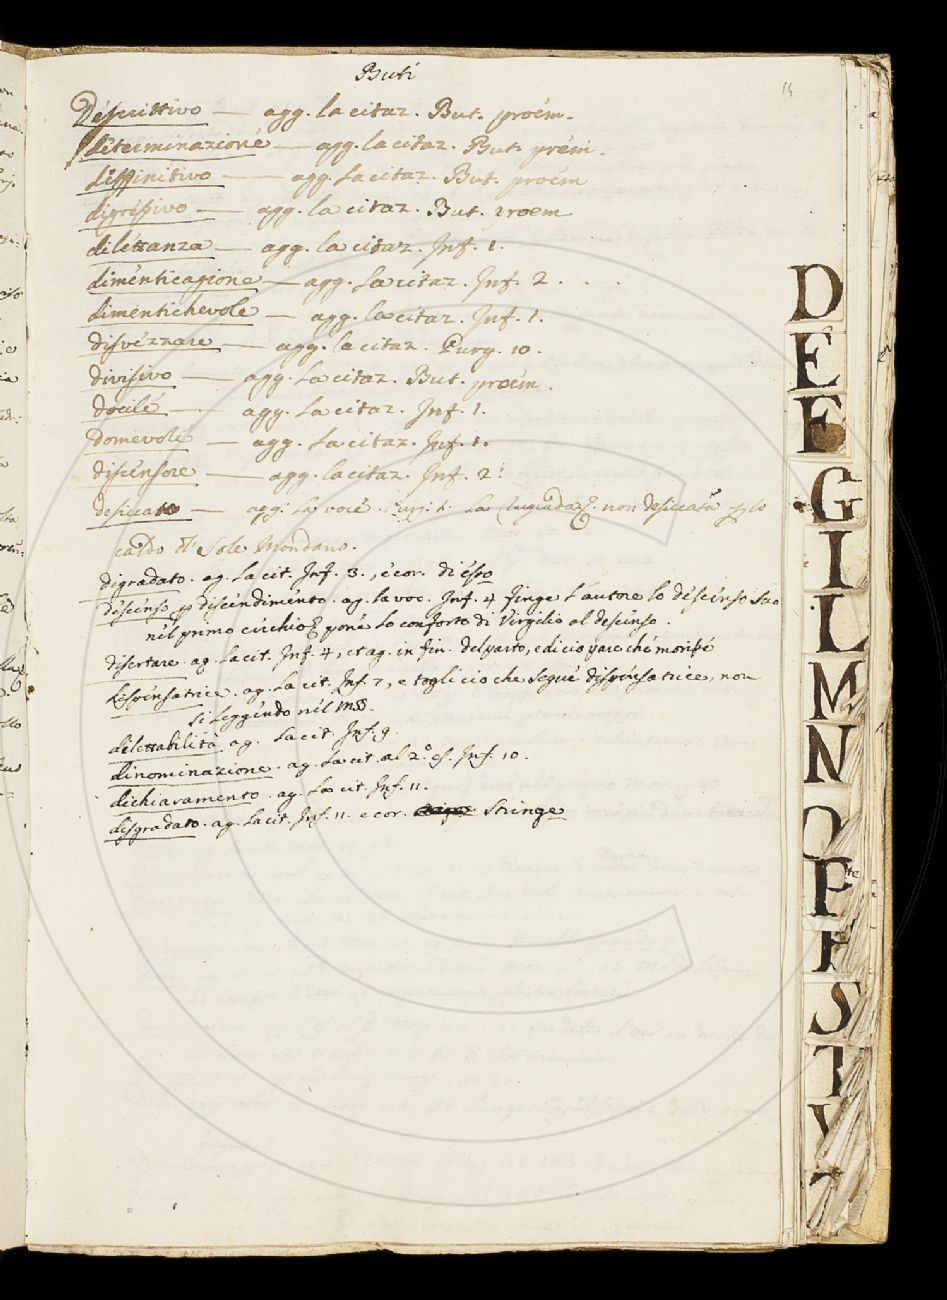 Buti
14
Descrittivo — agg. la citaz. But. proem.
determinazione — agg. la citaz. But. proem.
diffinitivo — agg. la citaz. But. proem
digressivo — agg. la citaz. But. proem
dilettanza — agg. la citaz. Inf. 1.
dimenticagione — agg. la citaz. Inf. 2 . . .
dimentichevole — agg. la citaz. Inf. 1.
disvezzare — agg. la citaz. Purg. 10.
divisivo — agg. la citaz. But. proem.
docile — agg. la citaz. Inf. 1.
domevole — agg. la citaz. Inf. 1.
discensore — agg. la citaz. Inf. 2.
desiccato — agg. la voce. La rugiada non desiccata lo
caldo Sole Mondano.
digradato. ag. la cit. Inf. 3., e cor. di esso
descenso discendimento. ag. la voc. Inf. 4 finge l'autore lo descenso suo
nel primo cerchio pone lo conforto di Virgilio al descenso.
disertare. ag. la cit. Inf. 4, et ag. in fin. del parto, e di ciò pare che morisse
despensatrice. ag. la cit. Inf. 7, e togli ciò che segue dispensatrice, non
si leggendo nel MSS.
dilettabilità ag. la cit. Inf. 9.
dinominazione. ag. la cit. al 2.° §. Inf. 10.
dichiaramento. ag. la cit. Inf. 11.
disgradato. ag. la cit. Inf. 11. e cor. stringe
D
E
F
G
I
L
M
N
O
P
S
T
V